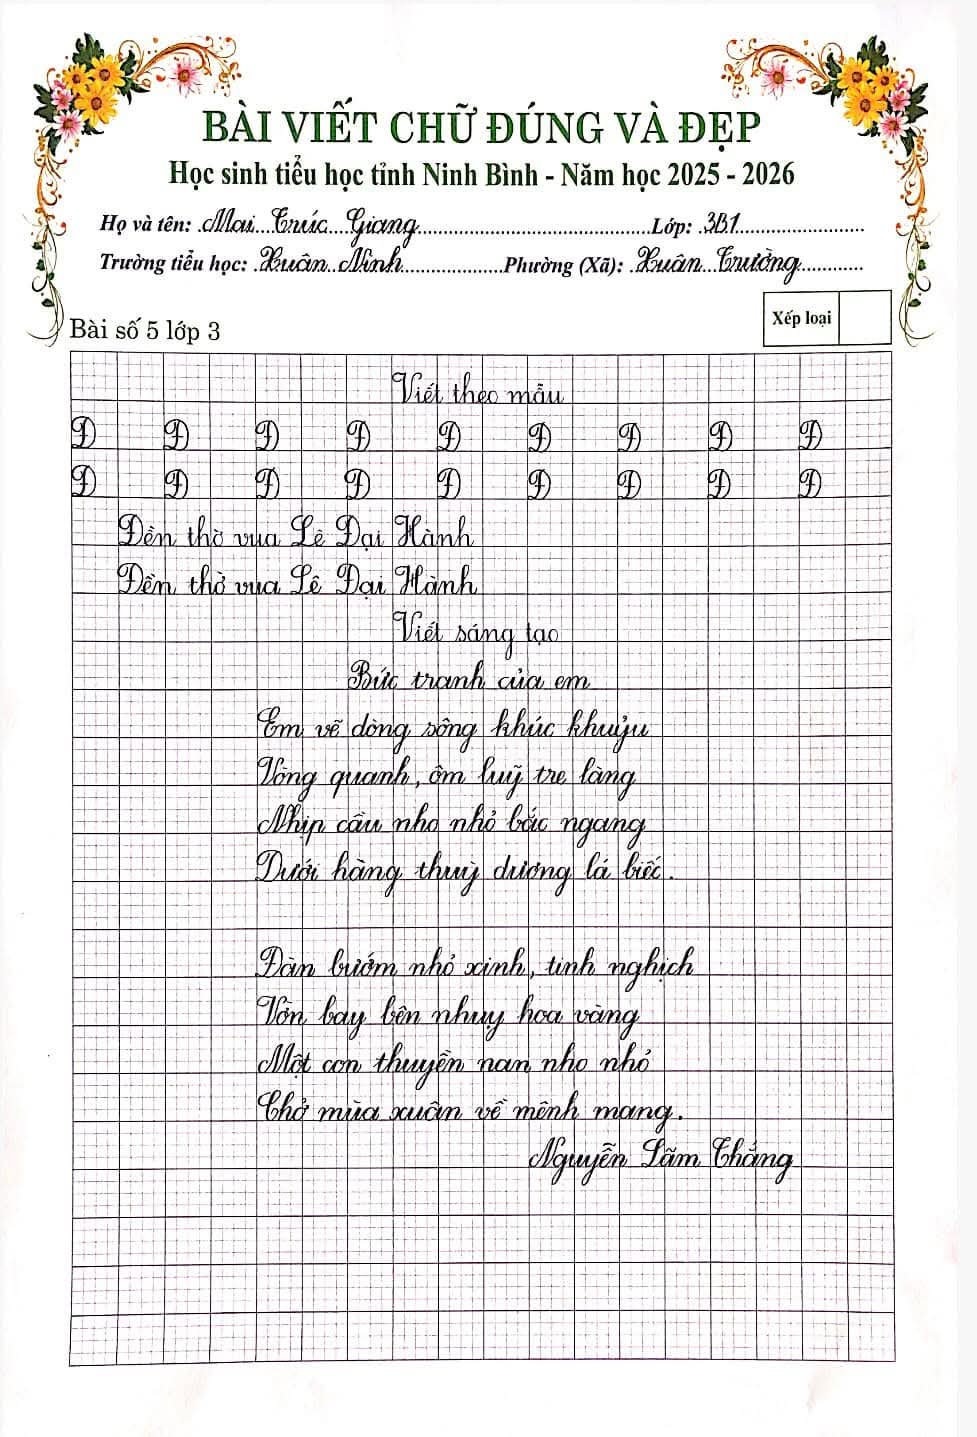 BÀI VIẾT CHỮ ĐÚNG VÀ ĐẸP
Học sinh tiểu học tỉnh Ninh Bình - Năm học 2025 - 2026
Họ và tên: Mai Trúc Giang Lớp: 3B1
Trường tiểu học: Xuân Ninh Phường (Xã): Xuân Trường
Xếp loại
Bài số 5 lớp 3
Viết theo mẫu
Đ Đ Đ Đ Đ Đ Đ Đ Đ
Đ Đ Đ Đ Đ Đ Đ Đ Đ
Đền thờ vua Lê Đại Hành
Đền thờ vua Lê Đại Hành
Viết sáng tạo
Bức tranh của em
Em vẽ dòng sông khúc khuỷu
Vòng quanh, ôm luỹ tre làng
Nhịp cầu nho nhỏ bắc ngang
Dưới hàng thuỳ dương lá biếc.
Đàn bướm nhỏ xinh, tinh nghịch
Vờn bay bên nhuỵ hoa vàng
Một con thuyền nan nho nhỏ
Chở mùa xuân về mênh mang.
Nguyễn Lãm Thắng